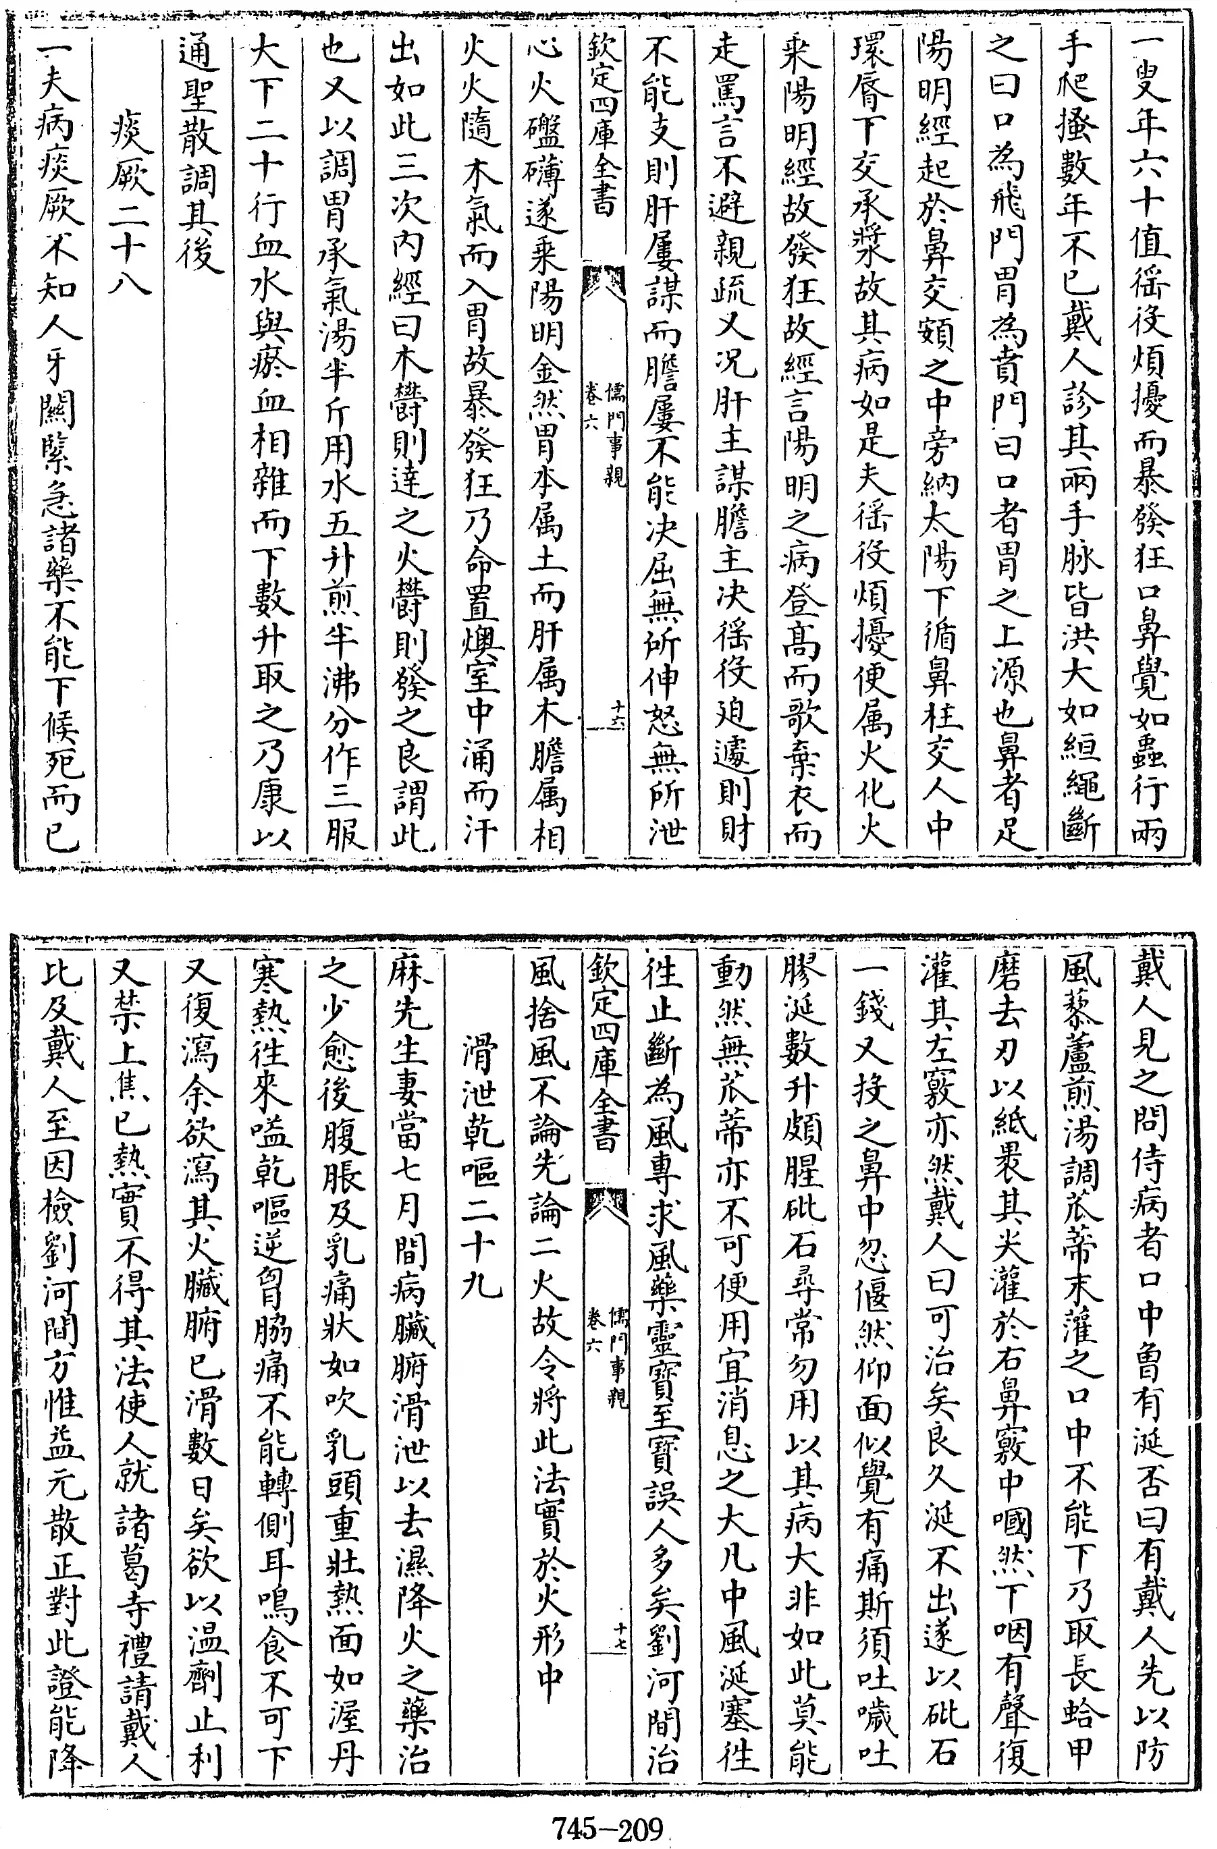 一叟年六十值徭役煩擾而暴發狂口鼻覺如蟲行兩
手爬搔數年不已戴人診其兩手脉皆洪大如絚繩斷
之曰口為飛門胃為賁門曰口者胃之上源也鼻者足
陽明經起於鼻交頞之中旁納太陽下循鼻柱交人中
環唇下交承漿故其病如是夫徭役煩擾便屬火化火
乗陽明經故發狂故經言陽明之病登髙而歌棄衣而
走罵言不避親疏又况肝主謀膽主决徭役廹遽則財
不能支則肝屢謀而膽屢不能决屈無所伸怒無所泄
欽定四庫全書
儒門事親
卷六
十六
心火礚礴遂乗陽明金然胃本屬土而肝属木膽属相
火火隨木氣而入胃故暴發狂乃命置燠室中涌而汗
出如此三次内經曰木欎則達之火欎則發之良謂此
也又以調胃承氣湯半斤用水五升煎半沸分作三服
大下二十行血水與瘀血相雜而下數升取之乃康以
通聖散調其後
痰厥二十八
一夫病痰厥不知人牙關緊急諸藥不能下候死而已
戴人見之問侍病者口中曽有涎否曰有戴人先以防
風藜蘆煎湯調苽蒂末灌之口中不能下乃取長蛤甲
磨去刃以紙褁其尖灌於右鼻竅中嘓然下咽有聲復
灌其左竅亦然戴人曰可治矣良久涎不出遂以砒石
一錢又投之鼻中忽偃然仰面似覺有痛斯須吐噦吐
膠涎數升頗腥砒石尋常勿用以其病大非如此莫能
動然無苽蒂亦不可便用宜消息之大凡中風涎塞徃
徃止斷為風專求風藥靈寶至寶誤人多矣劉河間治
欽定四庫全書
儒門事親
卷六
十七
風捨風不論先論二火故令將此法實於火形中
滑泄乾嘔二十九
麻先生妻當七月間病臓腑滑泄以去濕降火之藥治
之少愈後腹脹及乳痛狀如吹乳頭重壯熱面如渥丹
寒熱徃來嗌乾嘔逆胷脇痛不能轉側耳鳴食不可下
又復瀉余欲瀉其火臓腑已滑數日矣欲以温劑止利
又禁上焦已熱實不得其法使人就諸葛寺禮請戴人
比及戴人至因檢劉河間方惟益元散正對此證能降
745-209